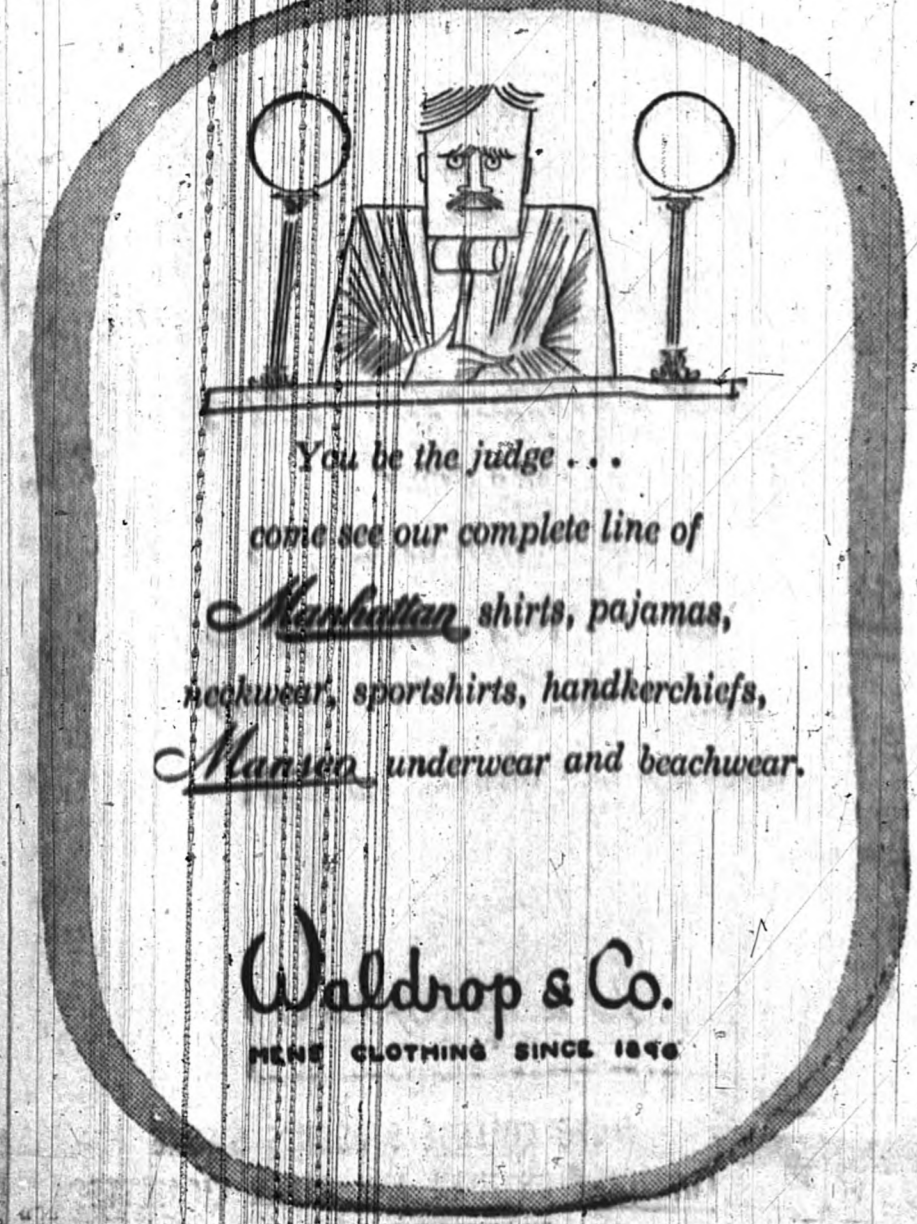 You be the judge . . .
come see our complete line of
Manhattan shirts, pajamas,
neckwear, sportshirts, handkerchiefs,
Mansco underwear and beachwear.
Waldrop & Co.
MENS CLOTHING SINCE 1896